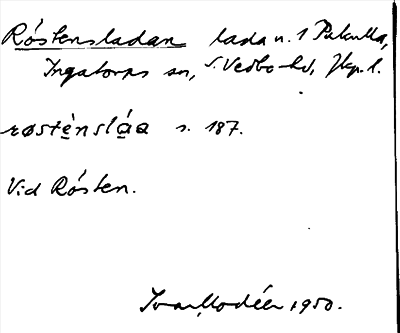 Röstensladan lada n. 1 Pukulla,
Ingatorps sn, S. Vedbo hd, Jkp. l.
røsténsláa s. 187.
Vid Rösten.
Ivar Modéer 1950.